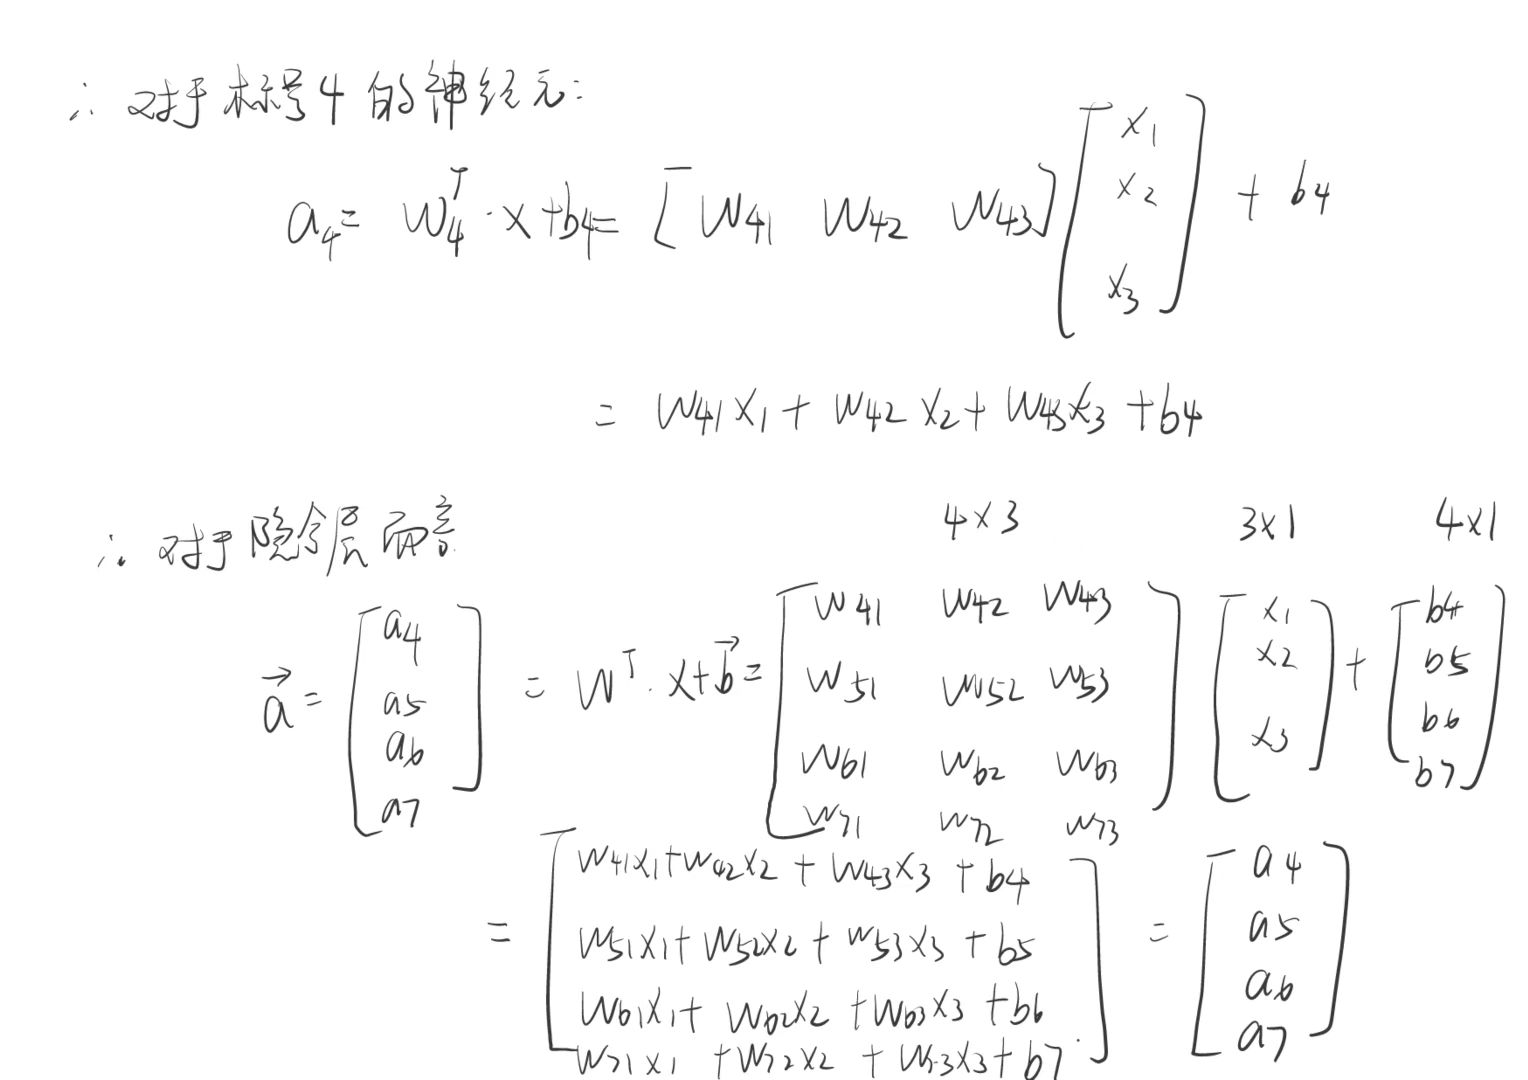 ∴ 对于标号4的神经元:
a₄ = W₄ᵀ · x + b₄ = [ W₄₁ W₄₂ W₄₃ ] [ x₁ x₂ x₃ ] + b₄
= W₄₁x₁ + W₄₂x₂ + W₄₃x₃ + b₄
∴ 对于隐含层而言
4×3 3×1 4×1
a⃗ = [ a₄ a₅ a₆ a₇ ] = Wᵀ · x + b⃗ = [ W₄₁ W₄₂ W₄₃
W₅₁ W₅₂ W₅₃
W₆₁ W₆₂ W₆₃
W₇₁ W₇₂ W₇₃ ] [ x₁ x₂ x₃ ] + [ b₄ b₅ b₆ b₇ ]
= [ W₄₁x₁ + W₄₂x₂ + W₄₃x₃ + b₄
W₅₁x₁ + W₅₂x₂ + W₅₃x₃ + b₅
W₆₁x₁ + W₆₂x₂ + W₆₃x₃ + b₆
W₇₁x₁ + W₇₂x₂ + W₇₃x₃ + b₇ ] = [ a₄ a₅ a₆ a₇ ]